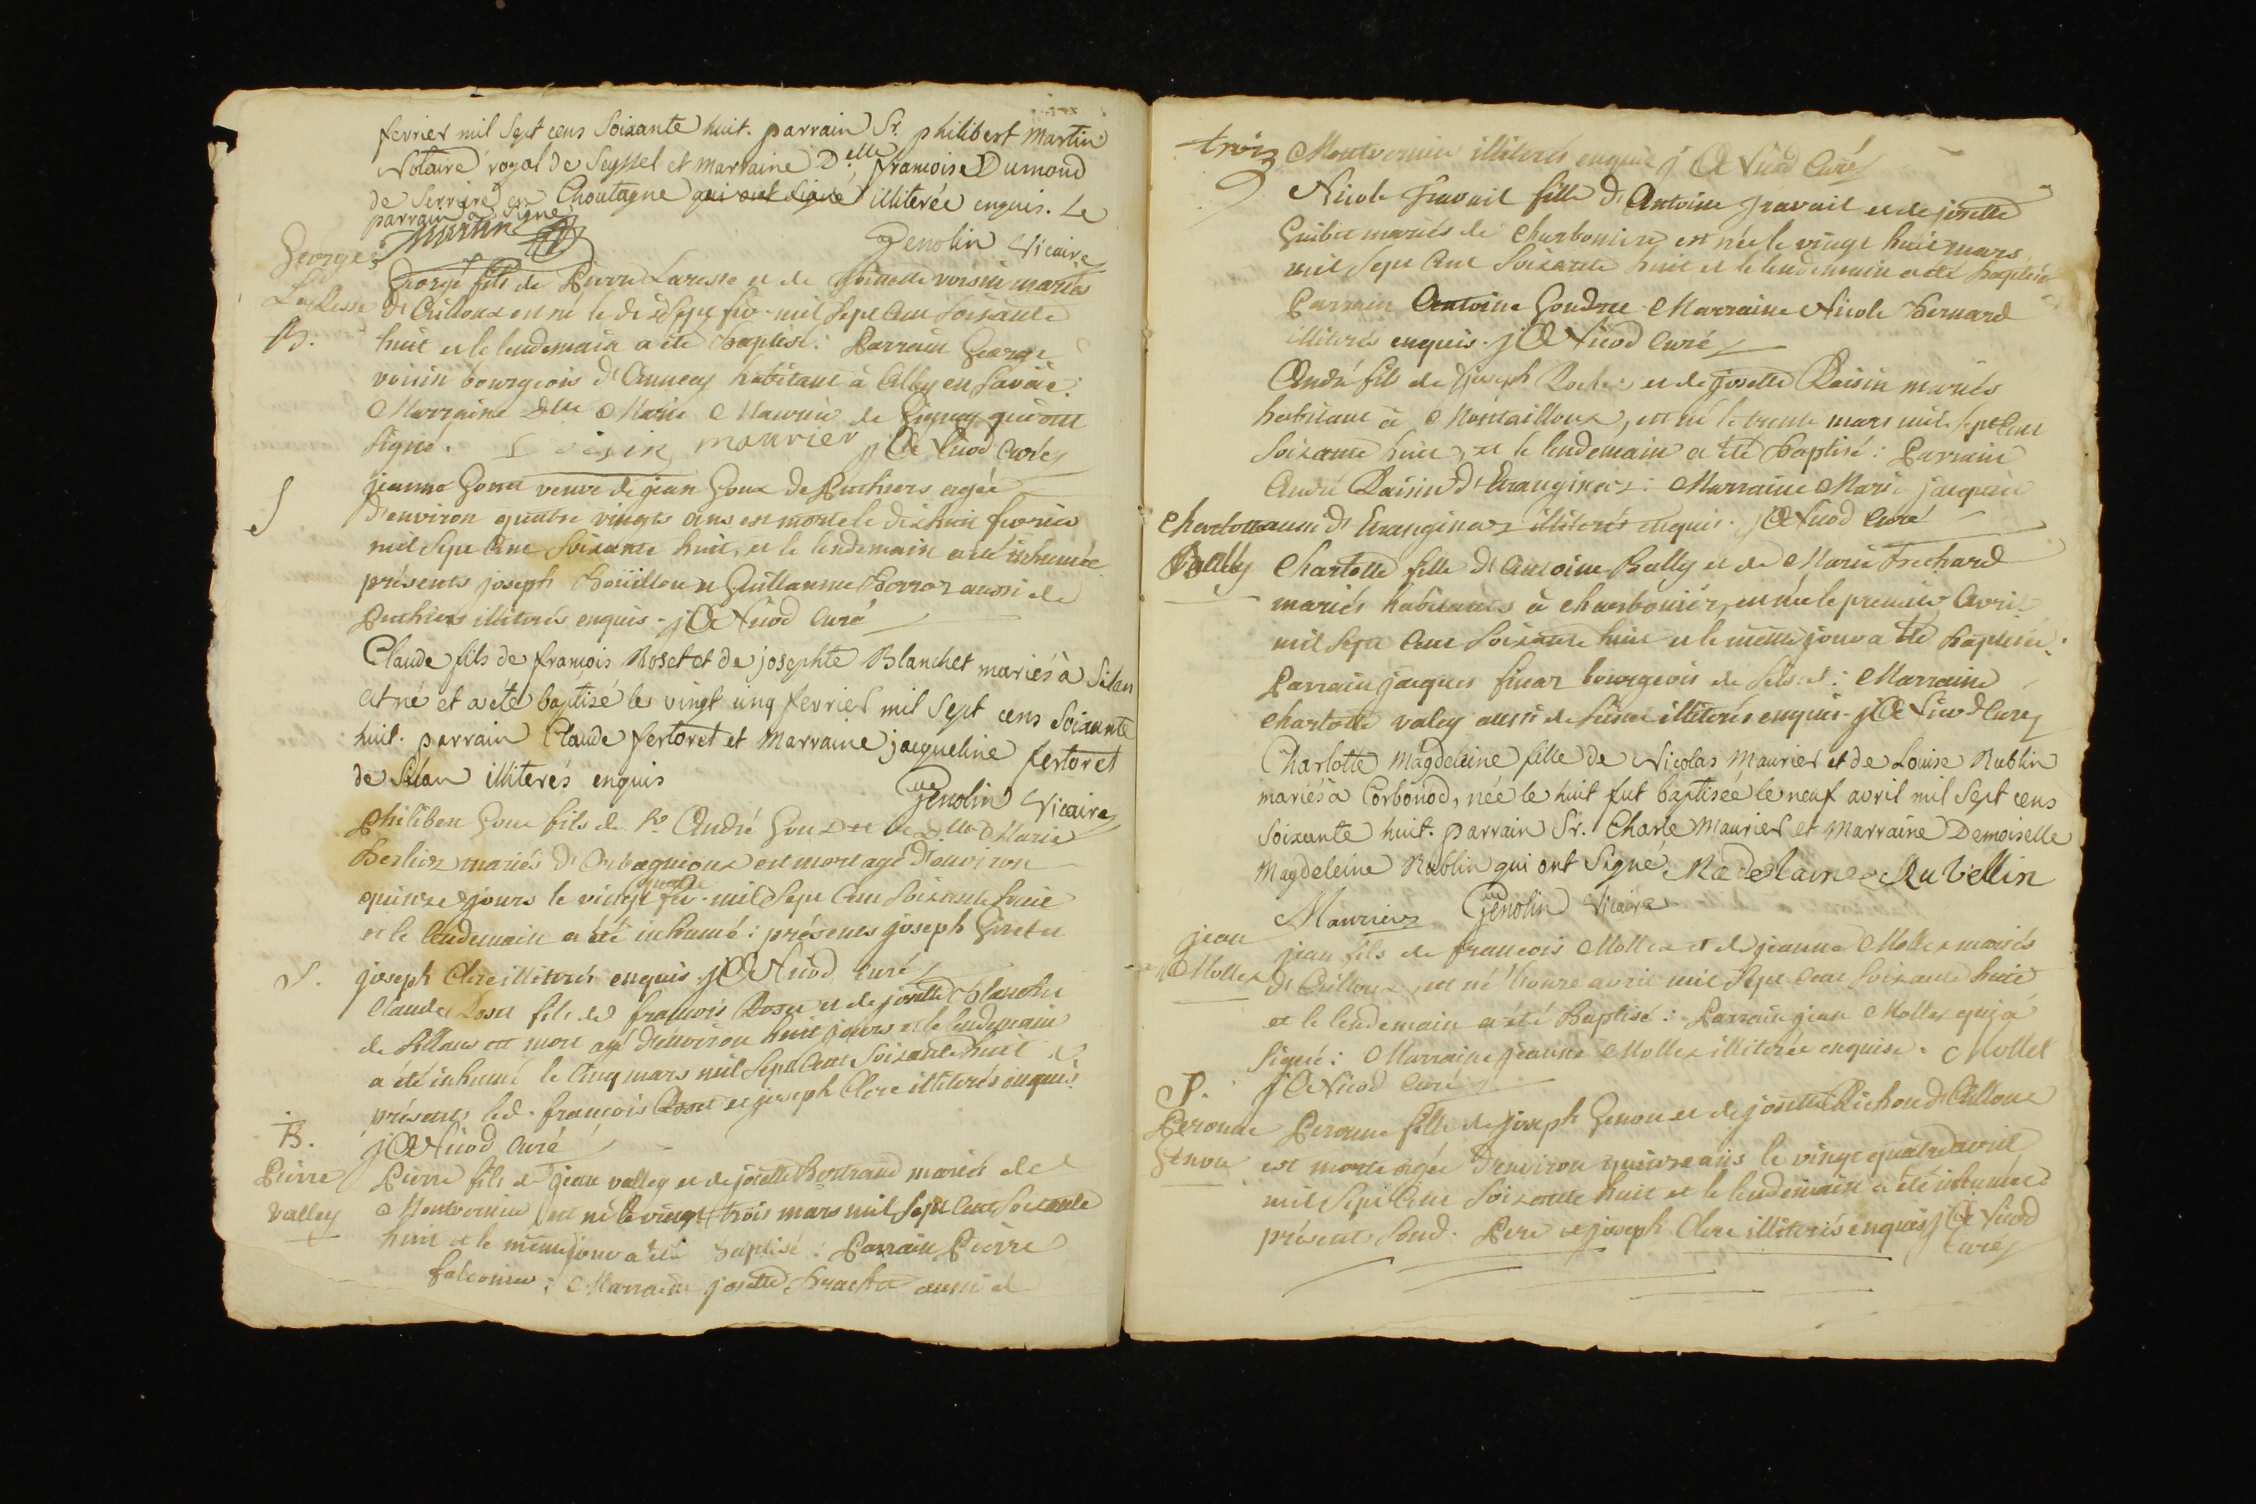 fevrier mil sept cens soixante huit. parrain Sr. philibert Martin
Notaire royal de Seyssel et marraine Delle françoise Dumond
de Serriere en Choutagne qui ont signé illiterée enquis. Le
parrain a signé
Martin
Genolin Vicaire
George
Laresse
B.
George fils de Pierre Laresse et de voisin mariés
d'Cullouz est né le dixsept fev. mil sept cent soixante
huit et le lendemain a été baptisé: Parrain George
voisin bourgeois d'Annecy habitant à Alby en Savoie:
Marraine Dlle Marie Maurier de qui ont
signé. voisin maurier j C Nicod Curé
S
jeanne Gonet veuve de jean Goux de Puthiers agée
d'environ quatre vingts ans est morte le dixhuit fevrier
mil sept cent soixante huit, et le lendemain a été inhumée
présents joseph Boüillon et Guillaume Borroz aussi de
Puthiers illiterés enquis. j C Nicod Curé
Claude fils de françois Roset et de josephte Blanchet mariés à Silan
est né et a été baptisé le vingt cinq fevrier mil sept cens soixante
huit. parrain Claude fertoret et marraine jacqueline fertoret
de Silan illiterés enquis
Genolin Vicaire
Philibert Goux fils de Sr André Goux et de Dlle Marie
Berlioz mariés d'Orbagnoux est mort agé d'environ
quinze jours le vingt quatre fev. mil sept cent soixante huit
et le lendemain a été inhumé: présents joseph Giret et
S.
joseph Clerc illiterés enquis j C Nicod curé
Claude Roset fils de françois Roset et de josette Blanchet
de Sillans est mort agé d'environ huit jours et le lendemain
a été inhumé le cinq mars mil sept cent soixante huit
présents led. françois Roset et joseph Clerc illiterés enquis
B.
j C Nicod Curé
Pierre
Valley
Pierre fils de jean valley et de josette Bertrand mariés de
Montvernier est né le vingt trois mars mil sept cent soixante
huit et le même jour a été baptisé: Parrain Pierre
falconier: Marraine josette Brachet aussi de
trois
Montvernier illiterés enquis j C Nicod Curé
Nicole Travail fille d'Antoine Travail et de josette
Guibet mariés de Charboniere est née le vingt huit mars
mil sept cent soixante huit et le lendemain a été baptisée
Parrain Antoine Goudree Marraine Nicole Bernard
illiterés enquis. j C Nicod Curé
André fils de joseph Roche et de josette Raisin mariés
habitant à Montailloux, est né le trente mars mil sept cent
soixante huit, et le lendemain a été baptisé: Parrain
André Raisin d'Eranginez: Marraine Marie jacquin
aussi d'Eranginez illiterés enquis. j C Nicod Curé
Charlotte
Bally
Charlotte fille d'Antoine Bally et de Marie Trechard
mariés habitants à Charbonier, est née le premier Avril
mil sept cent soixante huit et le même jour a été baptisée:
Parrain jacques finaz bourgeois de Seissel: Marraine
Charlotte valey aussi de Seissel illiterés enquis j C Nicod Curé
Charlotte Magdeleine fille de Nicolas Maurier et de Louise Rublin
mariés à Corbonod, née le huit fut baptisée le neuf avril mil sept cens
soixante huit. parrain Sr. Charle Maurier et Marraine Demoiselle
Magdeleine Rublin qui ont signé. Madelaine Rubellin
Maurier Genolin Vicaire
jean
Mollex
jean fils de francois Mollex et de jeanne Mollex mariés
d'Cullouz, est né l'honze avril mil sept cent soixante huit
et le lendemain a été Baptisé: Parrain jean Mollex qui a
signé: Marraine jeanne Mollex illiterée enquise. Mollex
j C Nicod Curé
P.
Peronne
Genou
Peronne fille de joseph Genou et de josette Richon d'Cullouz
est morte agée d'environ quinze ans le vingt quatre avril
mil sept cent soixante huit et le lendemain a été inhumée
présents sond. Pere et joseph Clerc illiterés enquis j C Nicod
Curé